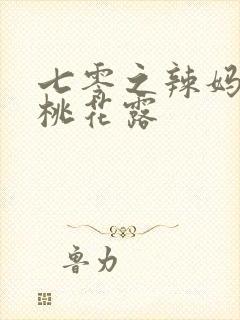 七零之辣妈
桃花露
鲁力